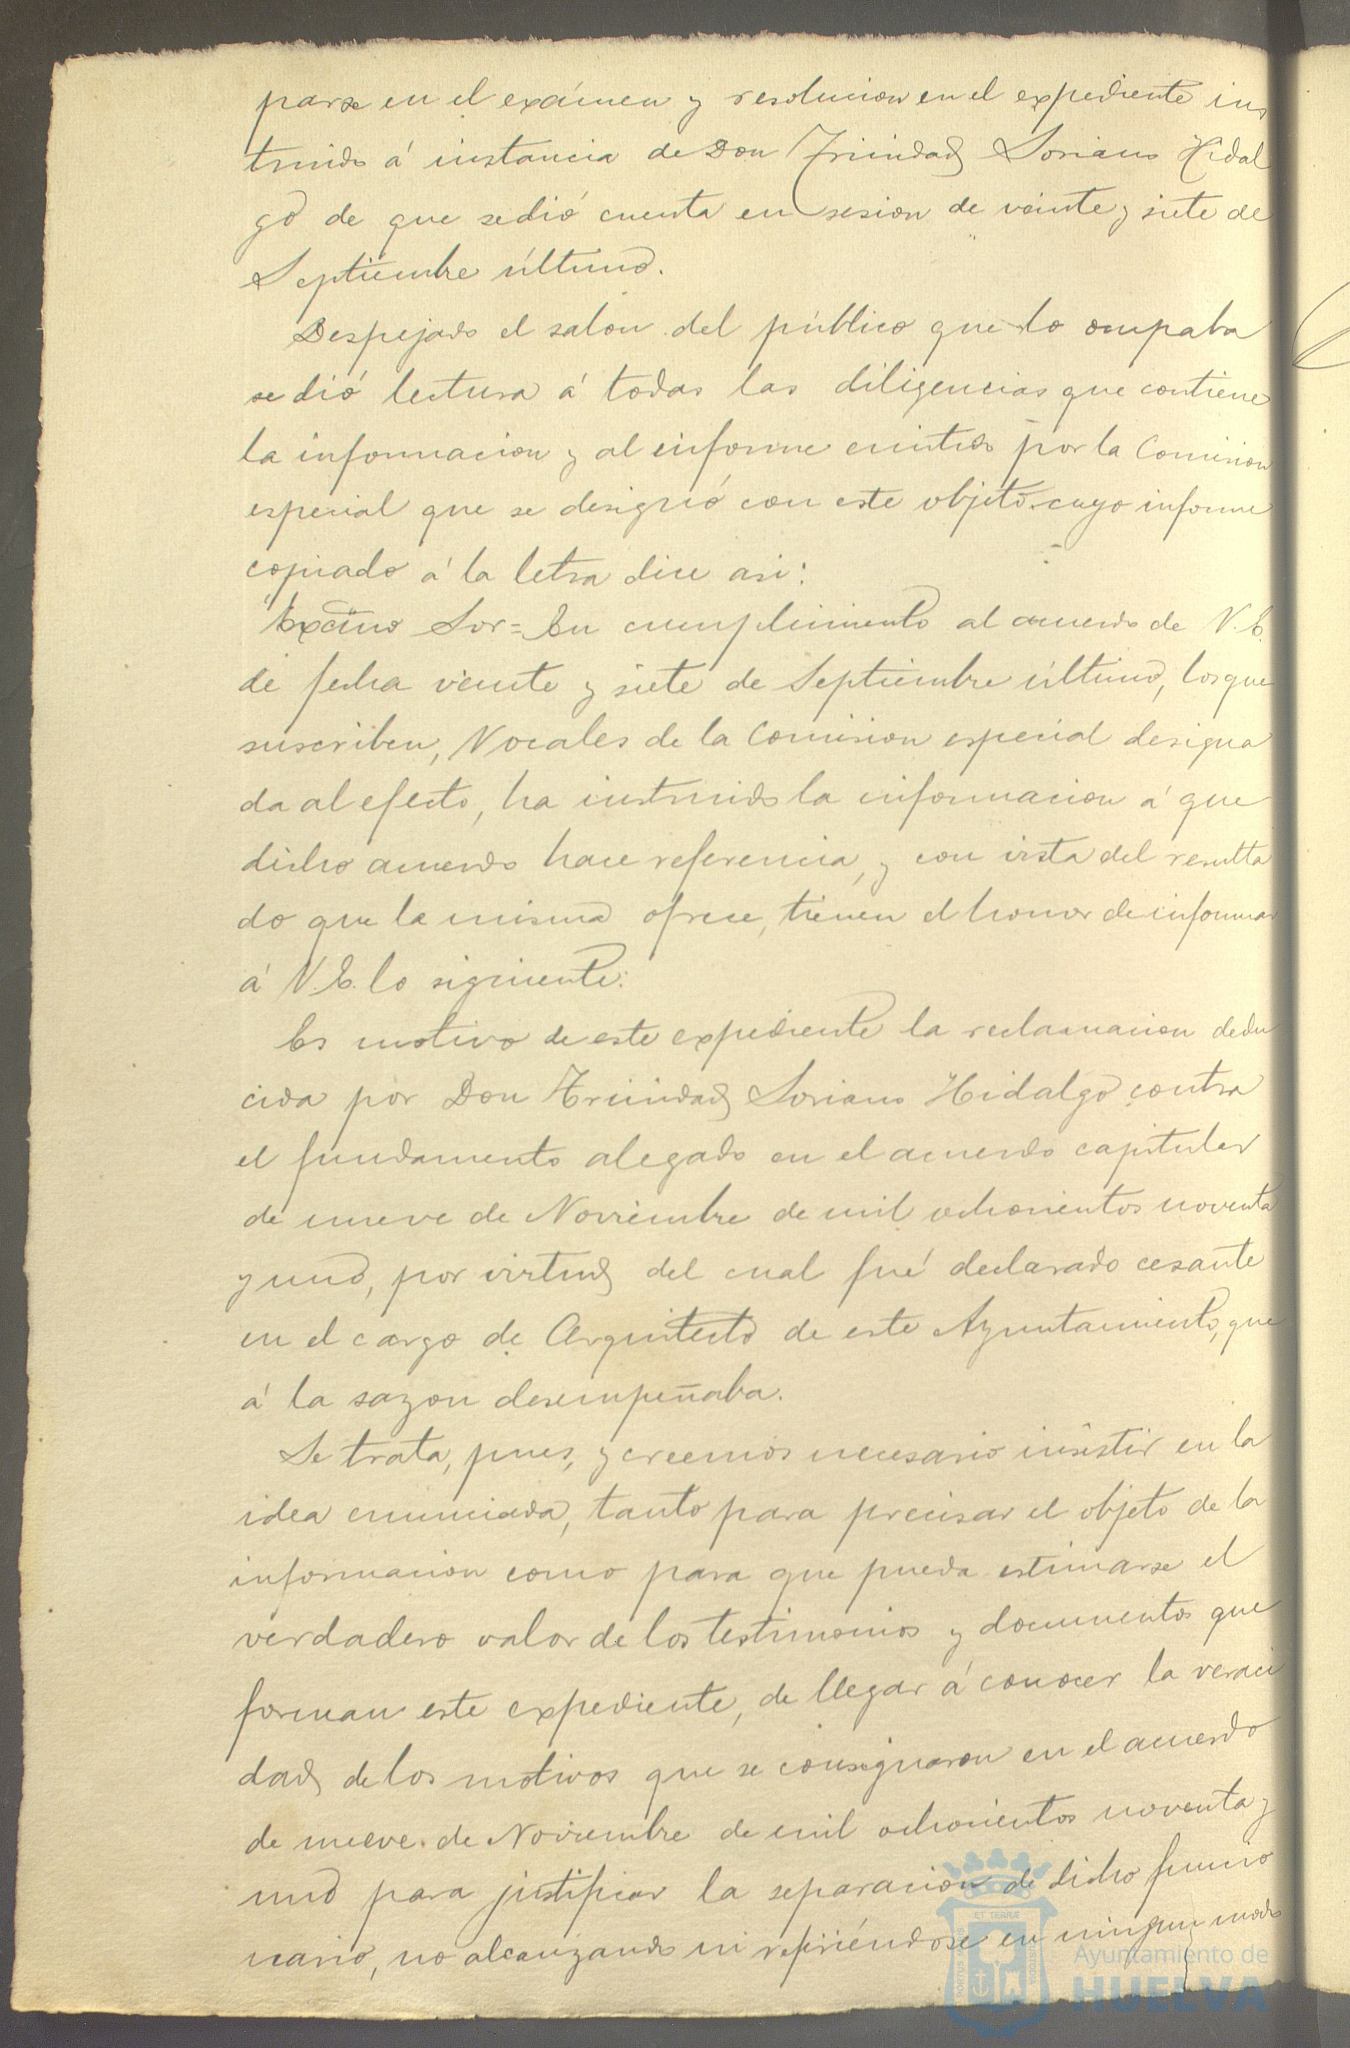 parse en el exámen y resolucion en el expediente ins
truido á instancia de Don Trinidad Soriano Hidal
go de que se dió cuenta en sesion de veinte y siete de
Septiembre último.
Despejado el salon del público que lo ocupaba
se dió lectura á todas las diligencias que contiene
la informacion y al informe emitido por la Comision
especial que se designó con este objeto cuyo informe
copiado á la letra dice asi:
Excmo Sor = En cumplimiento al acuerdo de V. E.
de fecha veinte y siete de Septiembre último, los que
suscriben, Vocales de la Comision especial designa
da al efecto, ha instruido la informacion á que
dicho acuerdo hace referencia, y con vista del resulta
do que la misma ofrece, tienen el honor de informar
á V. E. lo siguiente:
Es motivo de este expediente la reclamacion dedu
cida por Don Trinidad Soriano Hidalgo contra
el fundamento alegado en el acuerdo capitular
de nueve de Noviembre de mil ochocientos noventa
y uno, por virtud del cual fué declarado cesante
en el cargo de Arquitecto de este Ayuntamiento, que
á la sazon desempeñaba.
Se trata, pues, y creemos necesario insistir en la
idea enunciada, tanto para precisar el objeto de la
informacion como para que pueda estimarse el
verdadero valor de los testimonios y documentos que
forman este expediente, de llegar á conocer la veraci
dad de los motivos que se consignaron en el acuerdo
de nueve de Noviembre de mil ochocientos noventa y
uno para justificar la separacion de dicho funcio
nario, no alcanzando ni refiriéndose en ningun modo
Ayuntamiento de
HUELVA